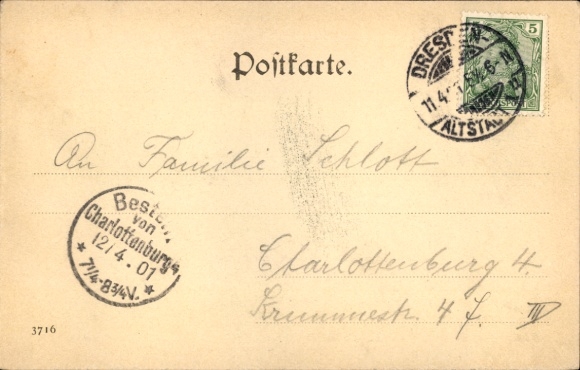 Postkarte.
5
DRESDEN-
11.4.
ALTSTADT
An Familie Schlott
Bestellt
von
Charlottenburg 4
12/4.01
* 7¼-8¾V. *
Charlottenburg 4.
Krummestr. 4 f. III
3716